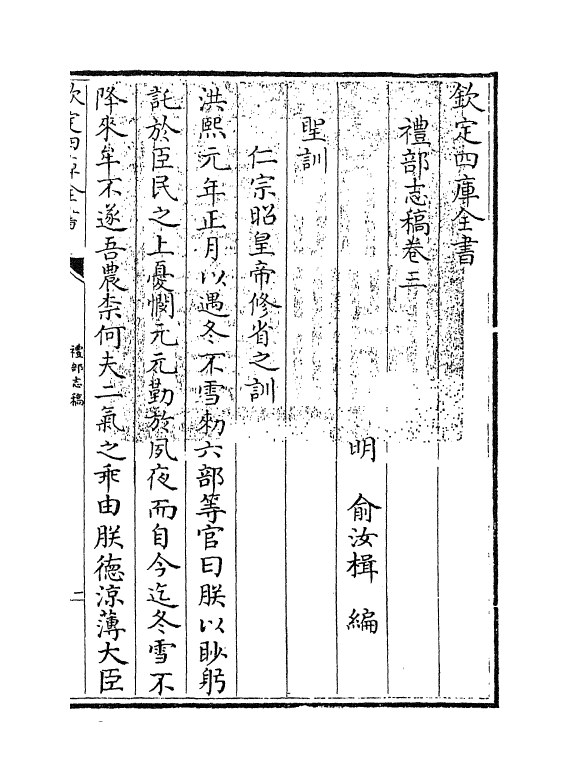 欽定四庫全書
禮部志稿卷三
明 俞汝楫 編
聖訓
仁宗昭皇帝修省之訓
洪熙元年正月以遇冬不雪勑六部等官曰朕以眇躬
託於臣民之上憂憫元元勤於夙夜而自今迄冬雪不
降來牟不遂吾農柰何夫二氣之乖由朕徳涼薄大臣
欽定四庫全書
禮部志稿
二